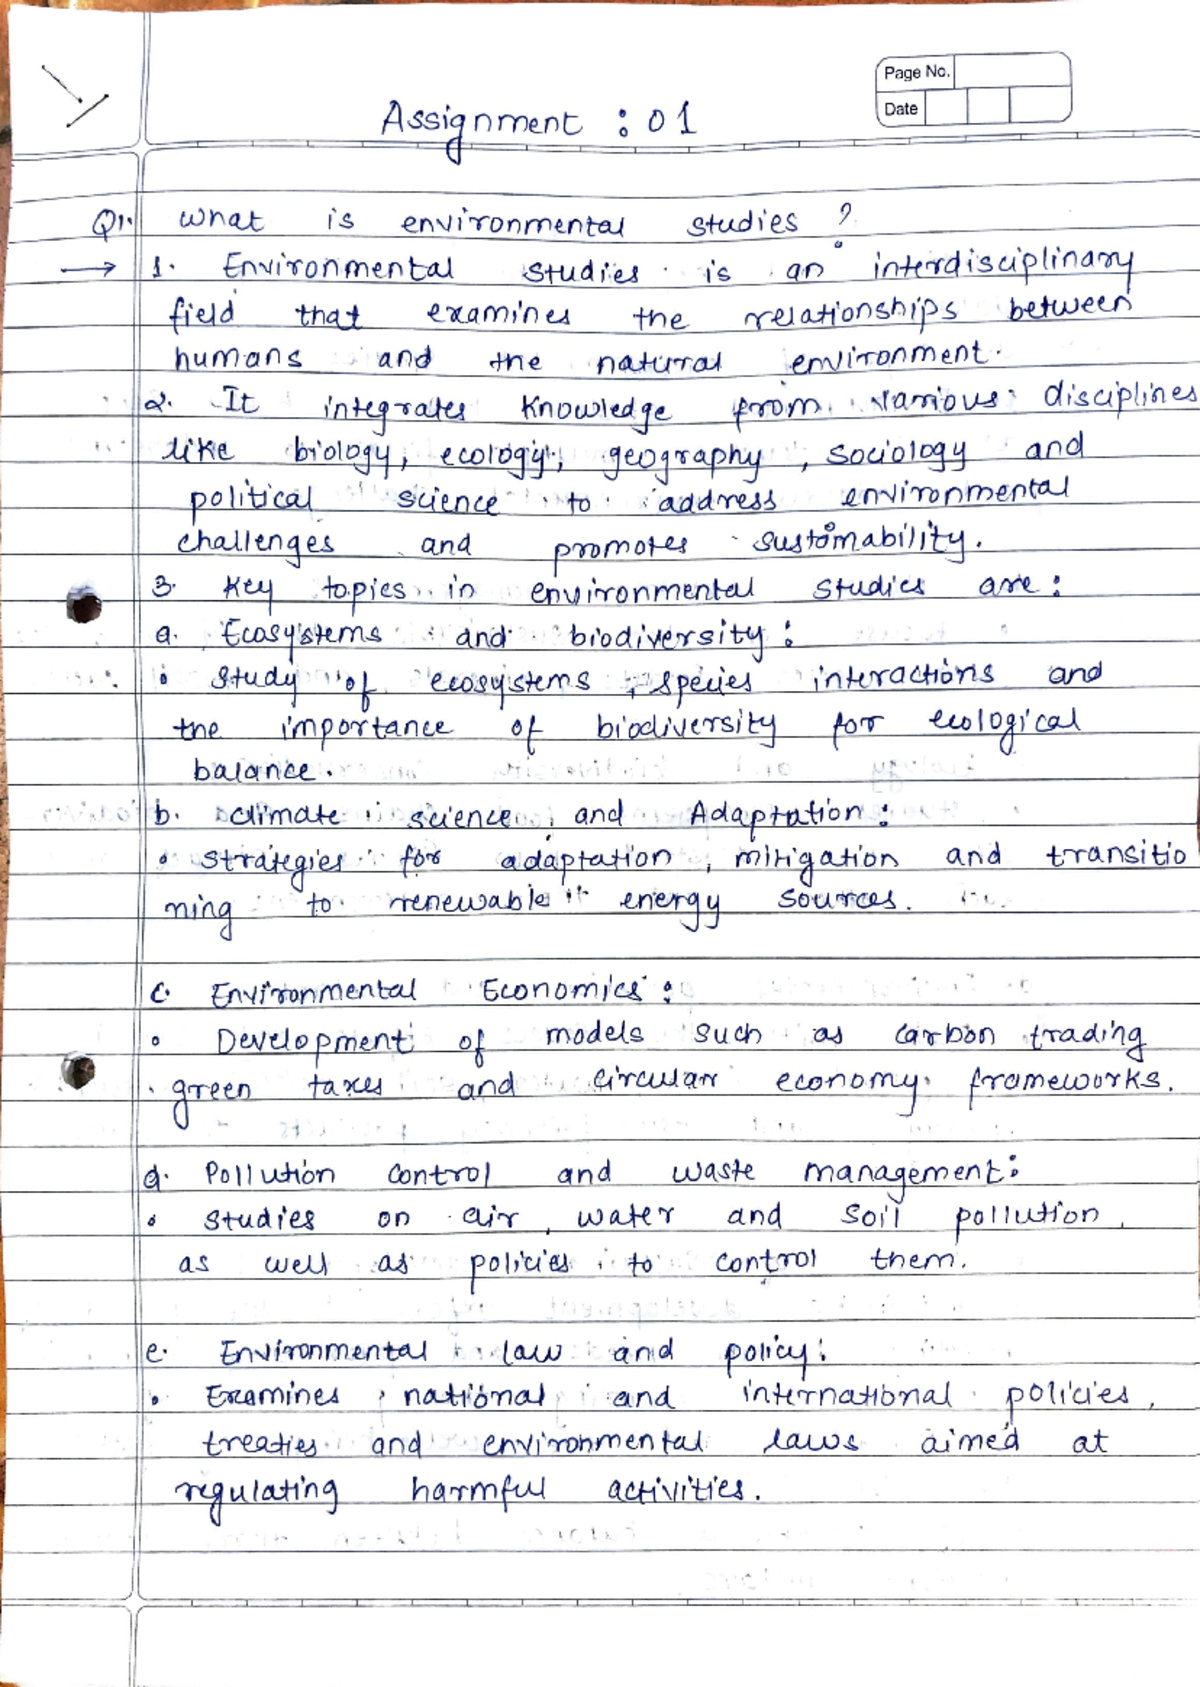 Page No.
Date
Assignment : 01
Q1. What is environmental studies ?
→ 1. Environmental studies is an interdisciplinary
field that examines the relationships between
humans and the natural environment.
2. It integrates knowledge from various disciplines
like biology, ecology, geography, sociology and
political science to address environmental
challenges and promotes sustainability.
3. Key topics in environmental studies are :
a. Ecosystems and biodiversity :
• Study of ecosystems, species interactions and
the importance of biodiversity for ecological
balance.
b. climate science and Adaptation :
• strategies for adaptation, mitigation and transitio
ning to renewable energy sources.
c. Environmental Economics :
• Development of models such as carbon trading
green taxes and circular economy frameworks.
d. Pollution control and waste management :
• studies on air, water and soil pollution,
as well as policies to control them.
e. Environmental law and policy :
• Examines national and international policies,
treaties and environmental laws aimed at
regulating harmful activities.